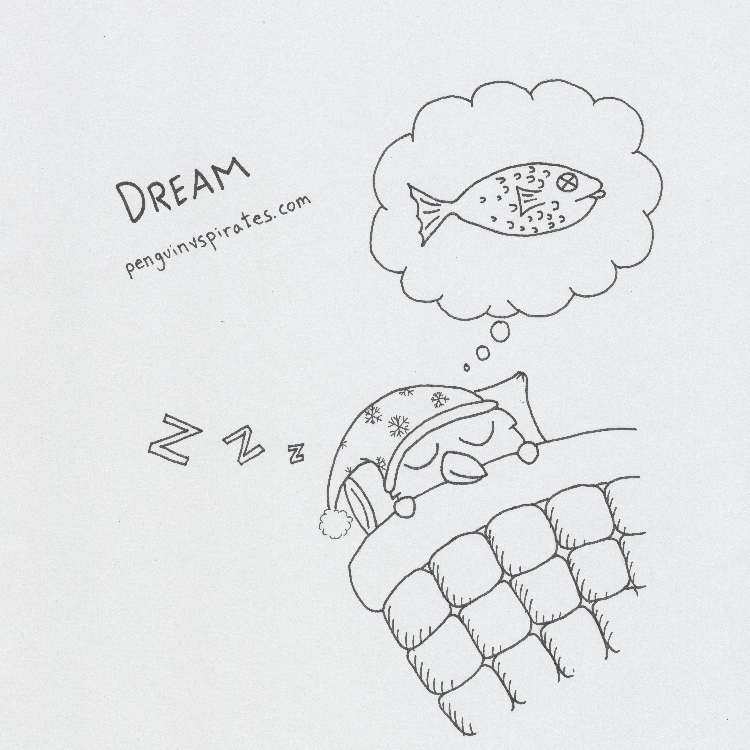 DREAM
penguinvspirates.com
Z Z Z